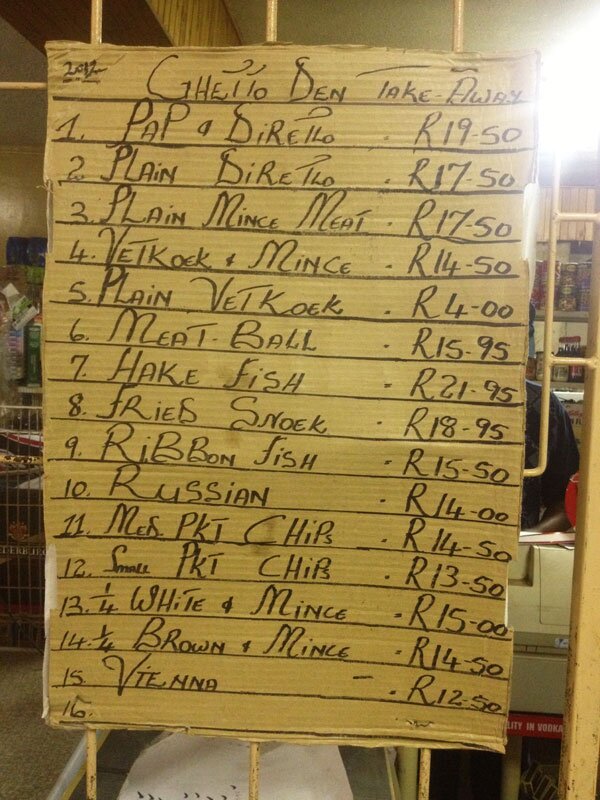 2012
Ghetto Den Take-Away
1. Pap & Diretlo . R19-50
2. Plain Diretlo . R17-50
3. Plain Mince Meat . R17-50
4. Vetkoek & Mince . R14-50
5. Plain Vetkoek . R4-00
6. Meat-Ball . R15-95
7. Hake Fish . R21-95
8. Fried Snoek . R18-95
9. Ribbon Fish . R15-50
10. Russian . R14-00
11. Med Pkt Chips . R14-50
12. Small Pkt Chips . R13-50
13. 1/4 White & Mince . R15-00
14. 1/4 Brown & Mince . R14-50
15. Vienna - . R12-50
16.
LITY IN VODKA